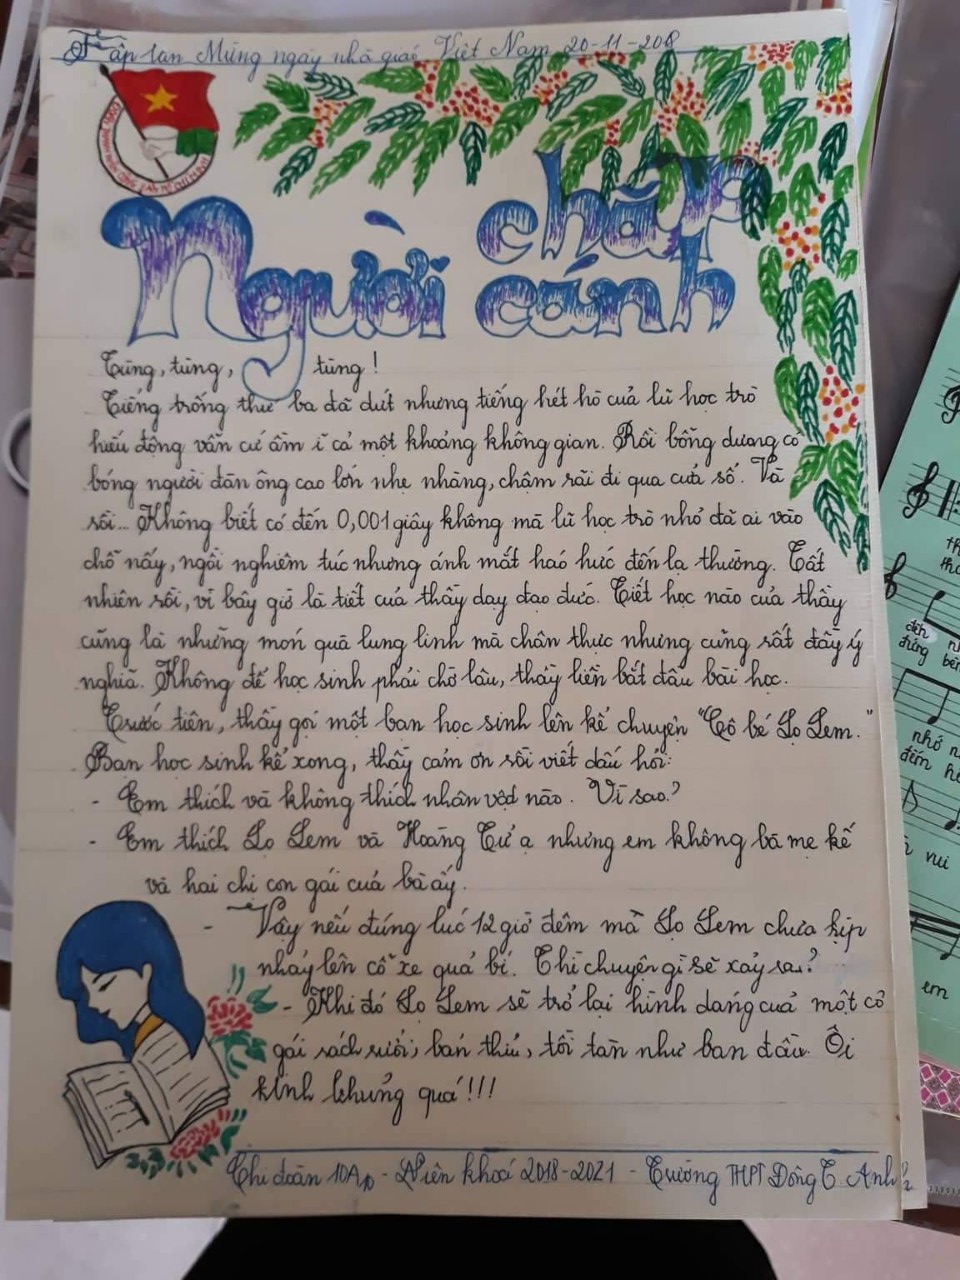 Tập san Mừng ngày nhà giáo Việt Nam 20-11-2018
Người chắp cánh
Tùng, tùng, tùng!
Tiếng trống thứ ba đã dứt nhưng tiếng hét hò của lũ học trò
hiếu động vẫn cứ ầm ĩ cả một khoảng không gian. Rồi bỗng dưng có
bóng người đàn ông cao lớn nhẹ nhàng, chậm rãi đi qua cửa sổ. Và
rồi... Không biết có đến 0,001 giây không mà lũ học trò nhỏ đã ai vào
chỗ nấy, ngồi nghiêm túc nhưng ánh mắt háo hức đến lạ thường. Tất
nhiên rồi, vì bây giờ là tiết của thầy dạy đạo đức. Tiết học nào của thầy
cũng là những món quà lung linh mà chân thực nhưng cũng rất đầy ý
nghĩa. Không để học sinh phải chờ lâu, thầy liền bắt đầu bài học.
Trước tiên, thầy gọi một bạn học sinh lên kể chuyện "Cô bé Lọ Lem."
Bạn học sinh kể xong, thầy cảm ơn rồi viết dấu hỏi:
- Em thích và không thích nhân vật nào. Vì sao?
- Em thích Lọ Lem và Hoàng Tử ạ nhưng em không bà mẹ kế
và hai chị con gái của bà ấy.
- Vậy nếu đúng lúc 12 giờ đêm mà Lọ Lem chưa kịp
nhảy lên cỗ xe quả bí. Thì chuyện gì sẽ xảy ra?
- Khi đó Lọ Lem sẽ trở lại hình dáng của một cô
gái rách rưới, bẩn thỉu, tồi tàn như ban đầu. Ôi
kinh khủng quá!!!
Chi đoàn 10A10 - Niên khoá 2018-2021 - Trường THPT Đông